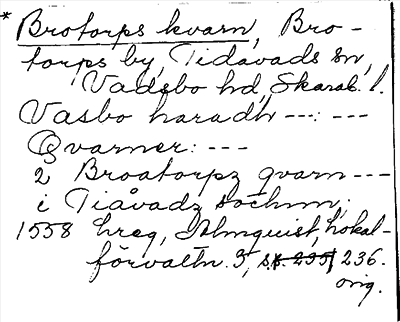 * Brotorps kvarn, Bro-
torps by, Tidavads sn,
Vadsbo hd, Skarab. l.
Vasbo haradh ---: ---
Qvarner: ---
2 Broatorpz qvarn ---
i Tiåvadz sochnn;
1558 hreg, Almquist, Lokal-
förvaltn. 3, s. 235, 236.
orig.